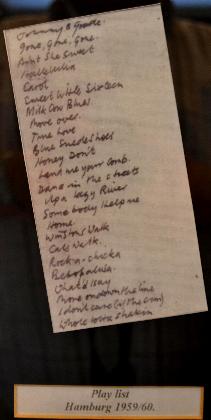 Johnny B Goode.
Gone, Gone, Gone.
Aint She Sweet
Hallelulia
Carol
Sweet Little Sixteen
Milk Cow Blues
Move over.
True Love
Blue Suede Shoes
Honey Don't
Lend me your Comb.
Dance in the Streets
Up a Lazy River
Somebody Help me
Home.
Winstons Walk
Cats Walk.
Rock-a-chicka
Bebopalula.
What'd I say
Move on down the line
I dont care (if the sun)
Whole lotta shakin
Play list
Hamburg 1959/60.